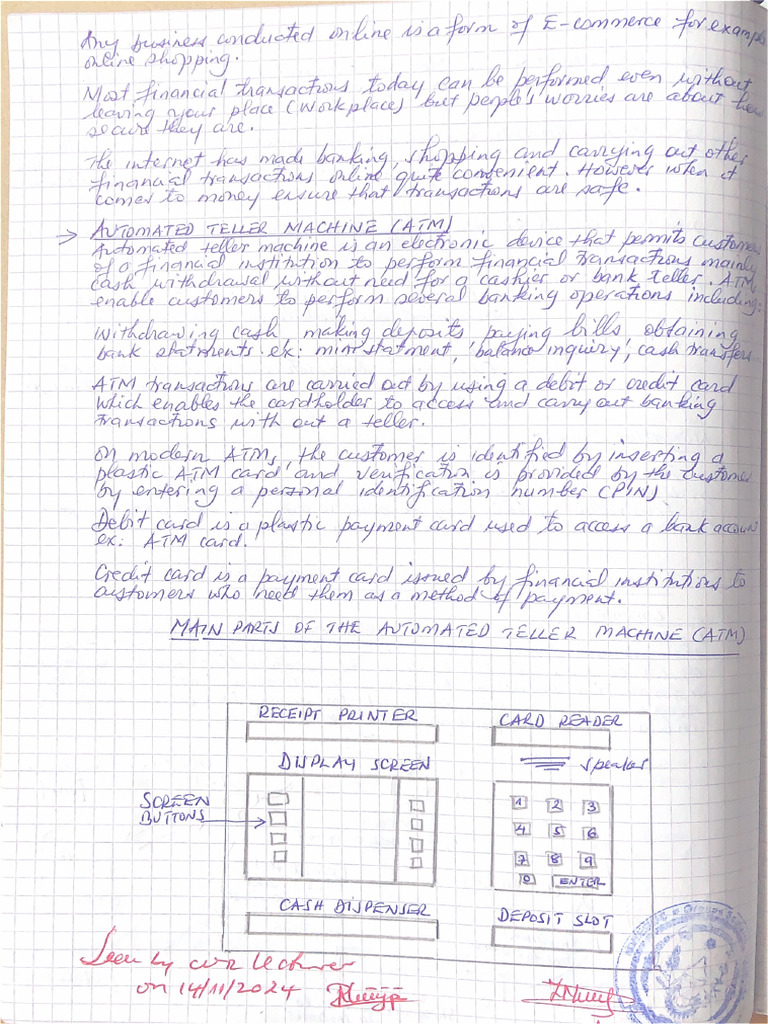 Any business conducted online is a form of E-commerce for example
online shopping.
Most financial transactions today can be performed even without
leaving your place (workplace) but people's worries are about how
secure they are.
The internet has made banking, shopping and carrying out other
financial transactions online quite convenient. However when it
comes to money ensure that transactions are safe.
→ AUTOMATED TELLER MACHINE (ATM)
Automated teller machine is an electronic device that permits customers
of a financial institution to perform financial transactions mainly
cash withdrawal without need for a cashier or bank teller. ATM
enable customers to perform several banking operations including:
withdrawing cash, making deposits paying bills obtaining
bank statments. ex: mini statment, 'balance inquiry', cash transfers
ATM transactions are carried out by using a debit or credit card
which enables the cardholder to access and carry out banking
transactions with out a teller.
On modern ATMs, the customer is identified by inserting a
plastic ATM card and verification is provided by the customer
by entering a personal identification number (PIN)
Debit card is a plastic payment card used to access a bank account
ex: ATM card.
Credit card is a payment card issued by financial institutions to
customers who need them as a method of payment.
MAIN PARTS OF THE AUTOMATED TELLER MACHINE (ATM)
RECEIPT PRINTER CARD READER
DISPLAY SCREEN speaker
SCREEN
BUTTONS
1 2 3
4 5 6
7 8 9
0 ENTER
CASH DISPENSER DEPOSIT SLOT
Seen by lecturer
on 14/11/2024